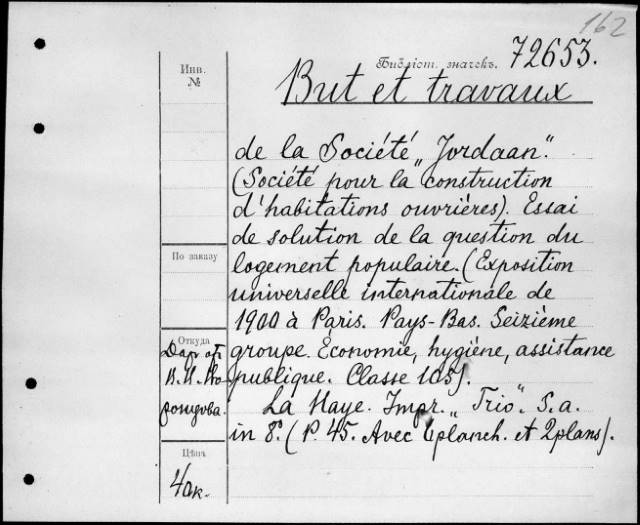 162
Библіот. значекъ. 72653.
Инв.
№
But et travaux
de la Société „Jordaan".
(Société pour la construction
d'habitations ouvrières). Essai
de solution de la question du
По заказу
logement populaire. (Exposition
universelle internationale de
1900 à Paris. Pays-Bas. Seizième
Откуда
Даръ отъ
groupe. Économie, hygiène, assistance
В. И.
publique. Classe 105).
La Haye. Impr. „Trio". S. a.
in 8°. (P. 45. Avec planch. et 2 plans).
Цѣна
40 к.